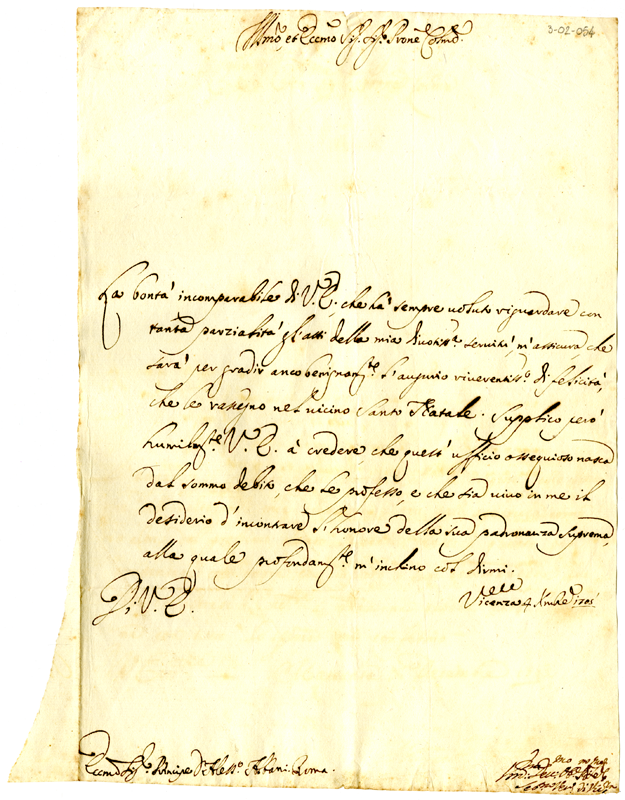 3-02-054
Illmo et Eccmo Sigr. Sigr. Prone Colmo.
La bontà incomparabile di V.E., che hà sempre uoluto riguardare con
tanta parzialità gl'atti della mia diuotissa. seruitù, m'assicura che
sarà per gradir anco benignamte. l'augurio riuerentisso. di felicità,
che le rassegno nel uicino Santo Natale. Supplico però
humilmte. V.E. à credere, che quest'ufficio ossequioso nasca
dal sommo debito, che le professo, e che sia uiuo in me il
desiderio d'incontrare l'honore della sua padronanza suprema,
alla quale profondamte. m'inchino col dirmi.
Di V.E.
Vicenza 4 Xmbre
Eccmo Sigr. Principe D. Alesso. Albani. Roma.